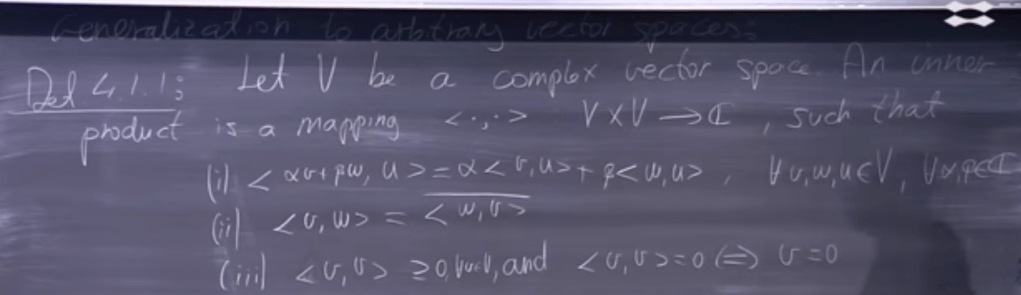 Generalization to arbitrary vector spaces:
Def 4.1.1: Let V be a complex vector space. An inner
product is a mapping <·,·> V×V → ℂ, such that
(i) < αv+βw, u> = α<v,u> + β<w,u>, ∀v,w,u∈V, ∀α,β∈ℂ
(ii) <v,w> = \overline{<w,v>}
(iii) <v,v> ≥0, ∀v∈V, and <v,v>=0 ⟺ v=0